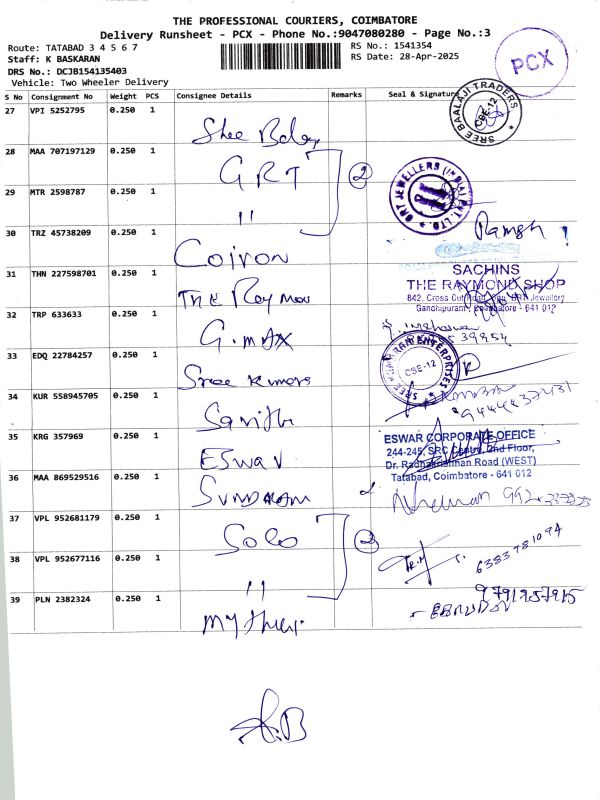 THE PROFESSIONAL COURIERS, COIMBATORE
Delivery Runsheet - PCX - Phone No.:9047080280 - Page No.:3
Route: TATABAD 3 4 5 6 7
Staff: K BASKARAN
DRS No.: DCJB154135403
Vehicle: Two Wheeler Delivery
RS No.: 1541354
RS Date: 28-Apr-2025
PCX
S No Consignment No Weight PCS Consignee Details Remarks Seal & Signature
27 VPI 5252795 0.250 1 Shee
SREE BAALAJI TRADERS
CBE-12
28 MAA 707197129 0.250 1 GRT 2
GRT JEWELLERS (INDIA) PVT. LTD.
29 MTR 2598787 0.250 1 "
30 TRZ 45738209 0.250 1 Coiron Ramesh
31 THN 227598701 0.250 1 THE Raymon
SACHINS
THE RAYMOND SHOP
842, Cross Cut Road, Opp. GRT Jewellers
Gandhipuram, Coimbatore - 641 012
32 TRP 633633 0.250 1 G.MAX
33 EDQ 22784257 0.250 1 Sree Kumars
ENTERPRISES
CBE-12
34 KUR 558945705 0.250 1 Savithi
9444437431
35 KRG 357969 0.250 1 ESwar
ESWAR CORPORATE OFFICE
244-245, SRC Centre, 2nd Floor,
Dr. Radhakrishnan Road (WEST)
Tatabad, Coimbatore - 641 012
36 MAA 869529516 0.250 1 SUNDARAM
37 VPL 952681179 0.250 1 Solo 2
6383781094
38 VPL 952677116 0.250 1 "
9791957915
39 PLN 2382324 0.250 1